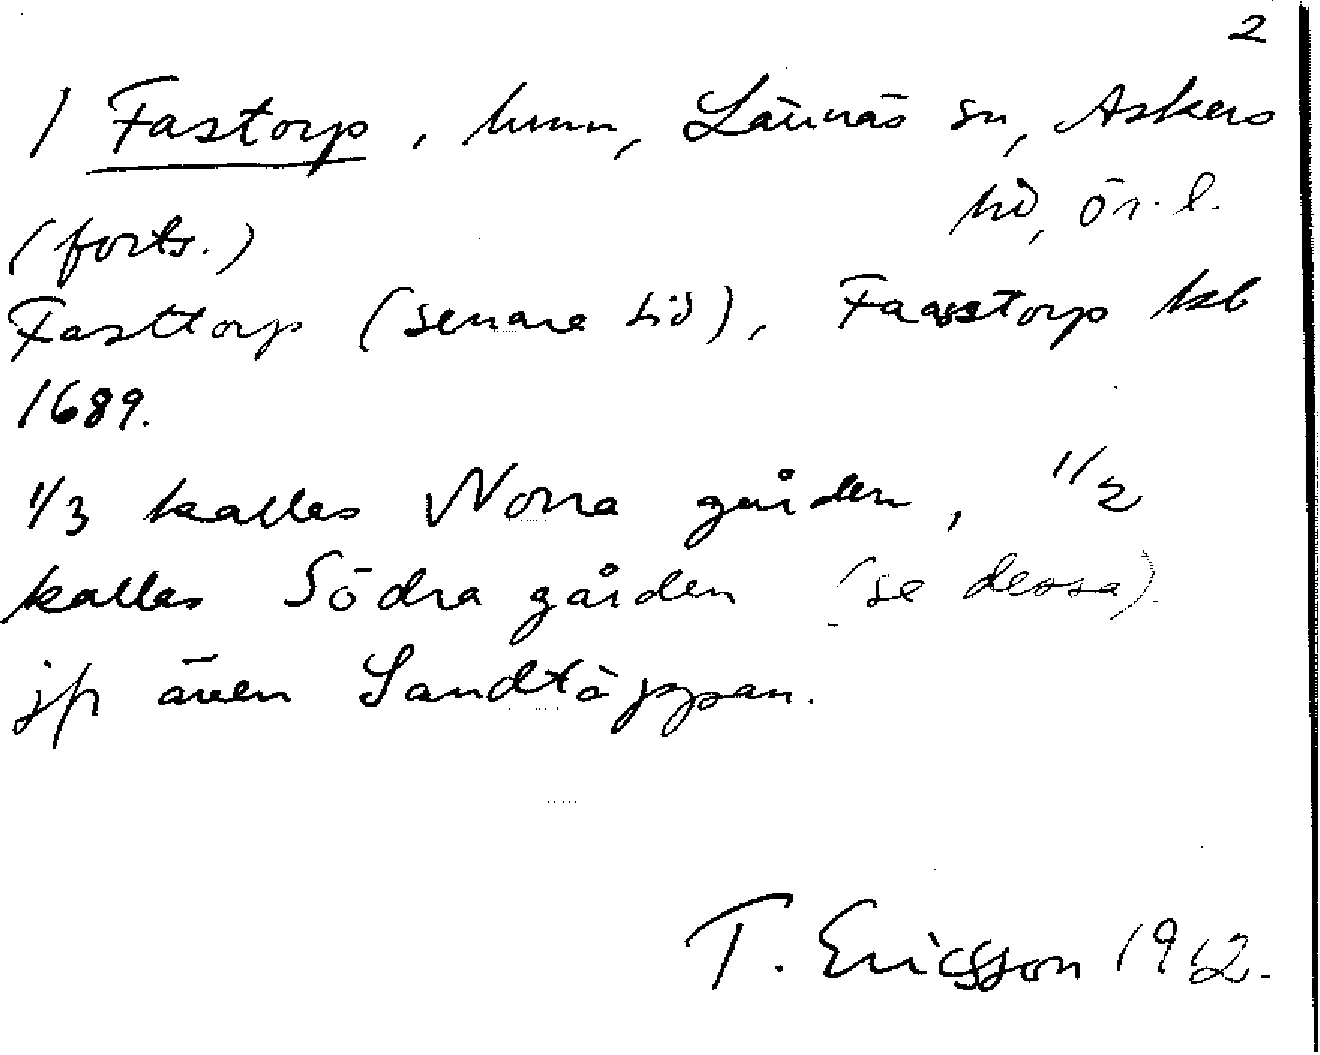 2
1 Fastorp, hmn, Lännäs sn, Askers
hd, ör. l.
(forts.)
Fasttorp (senare tid), Faasstorp kb
1689.
1/3 kalles Norra gården, 1/2
kalles Södra gården (se dessa)
jfr även Sandtäppan.
T. Ericsson 1962.